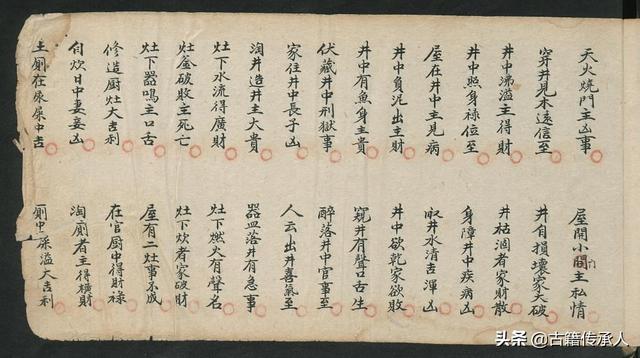 天火燒門主凶事 屋開小間主私情
穿井見木遠信至 井自損壞家大破
井中沸溢主得財 井枯涸者家財散
井中照身祿位至 身障井中疾病凶
屋在井中主見病 取井水清吉渾凶
井中負泥出主財 井中欲乾家欲敗
井中有魚身主貴 窺井有聲口舌生
伏藏井中刑獄事 醉落井中官事至
家住井中長子凶 人云出井喜氣至
淘井造井主大貴 器皿落井有急事
灶下水流得廣財 灶下燃火有聲名
灶釜破敗主死亡 灶下炊者家破財
灶下器鳴主口舌 屋有二灶事不成
修造厨灶大吉利 在官厨中得財祿
自炊日中妻妾凶 淘廁者主得橫財
廁在尿屎中吉 廁中屎溢大吉利
头条 @古籍传承人